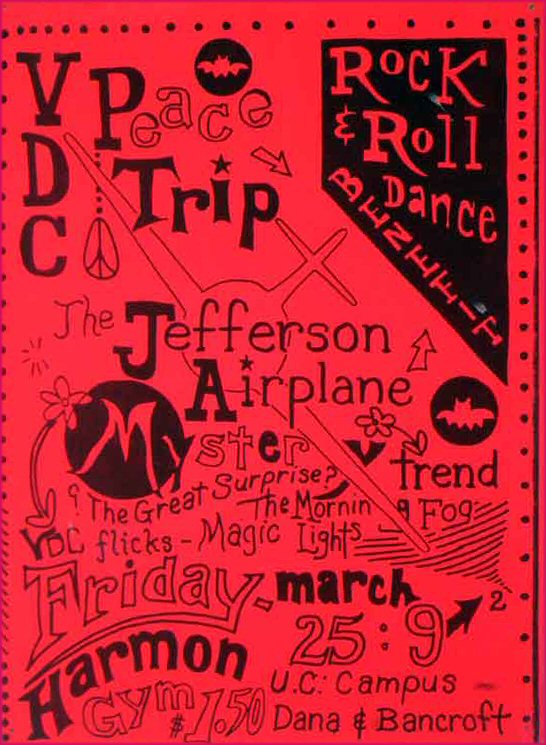 VDC
Peace
Trip
Rock
& Roll
Dance
BENEFIT
The Jefferson
Airplane
Mystery trend
The Great Surprise?
The Mornin g Fog
VDC flicks - Magic Lights
Friday - march
25 : 9 2
Harmon
Gym $1.50
U.C. Campus
Dana & Bancroft